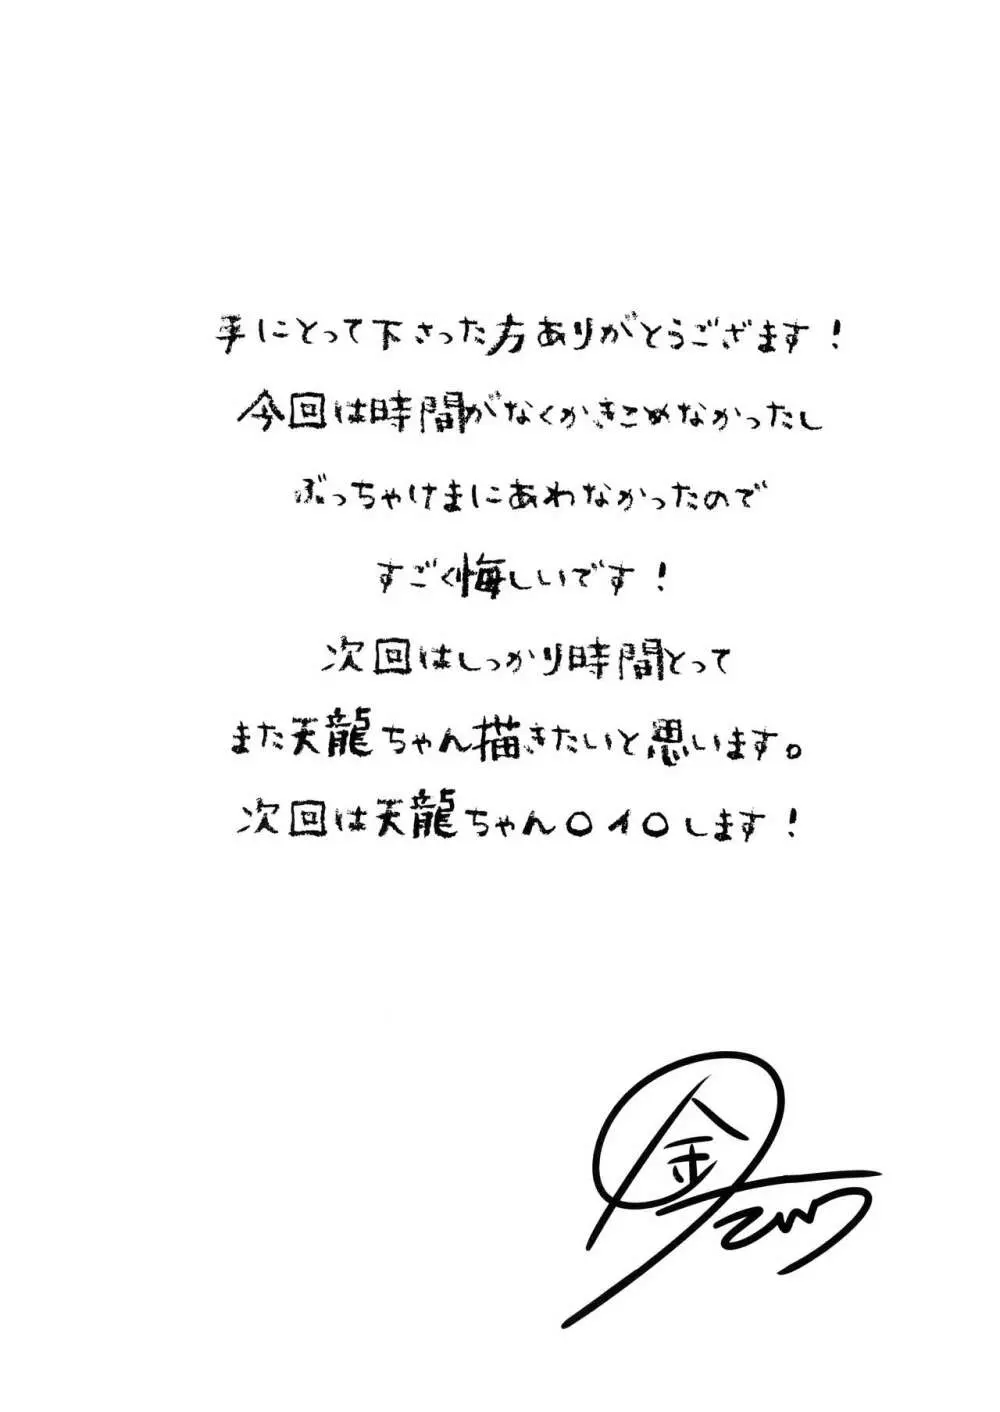 手にとって下さった方ありがとうござます!
今回は時間がなくかきこめなかったし
ぶっちゃけまにあわなかったので
すごく悔しいです!
次回はしっかり時間とって
また天龍ちゃん描きたいと思います。
次回は天龍ちゃん〇イ〇します!
金